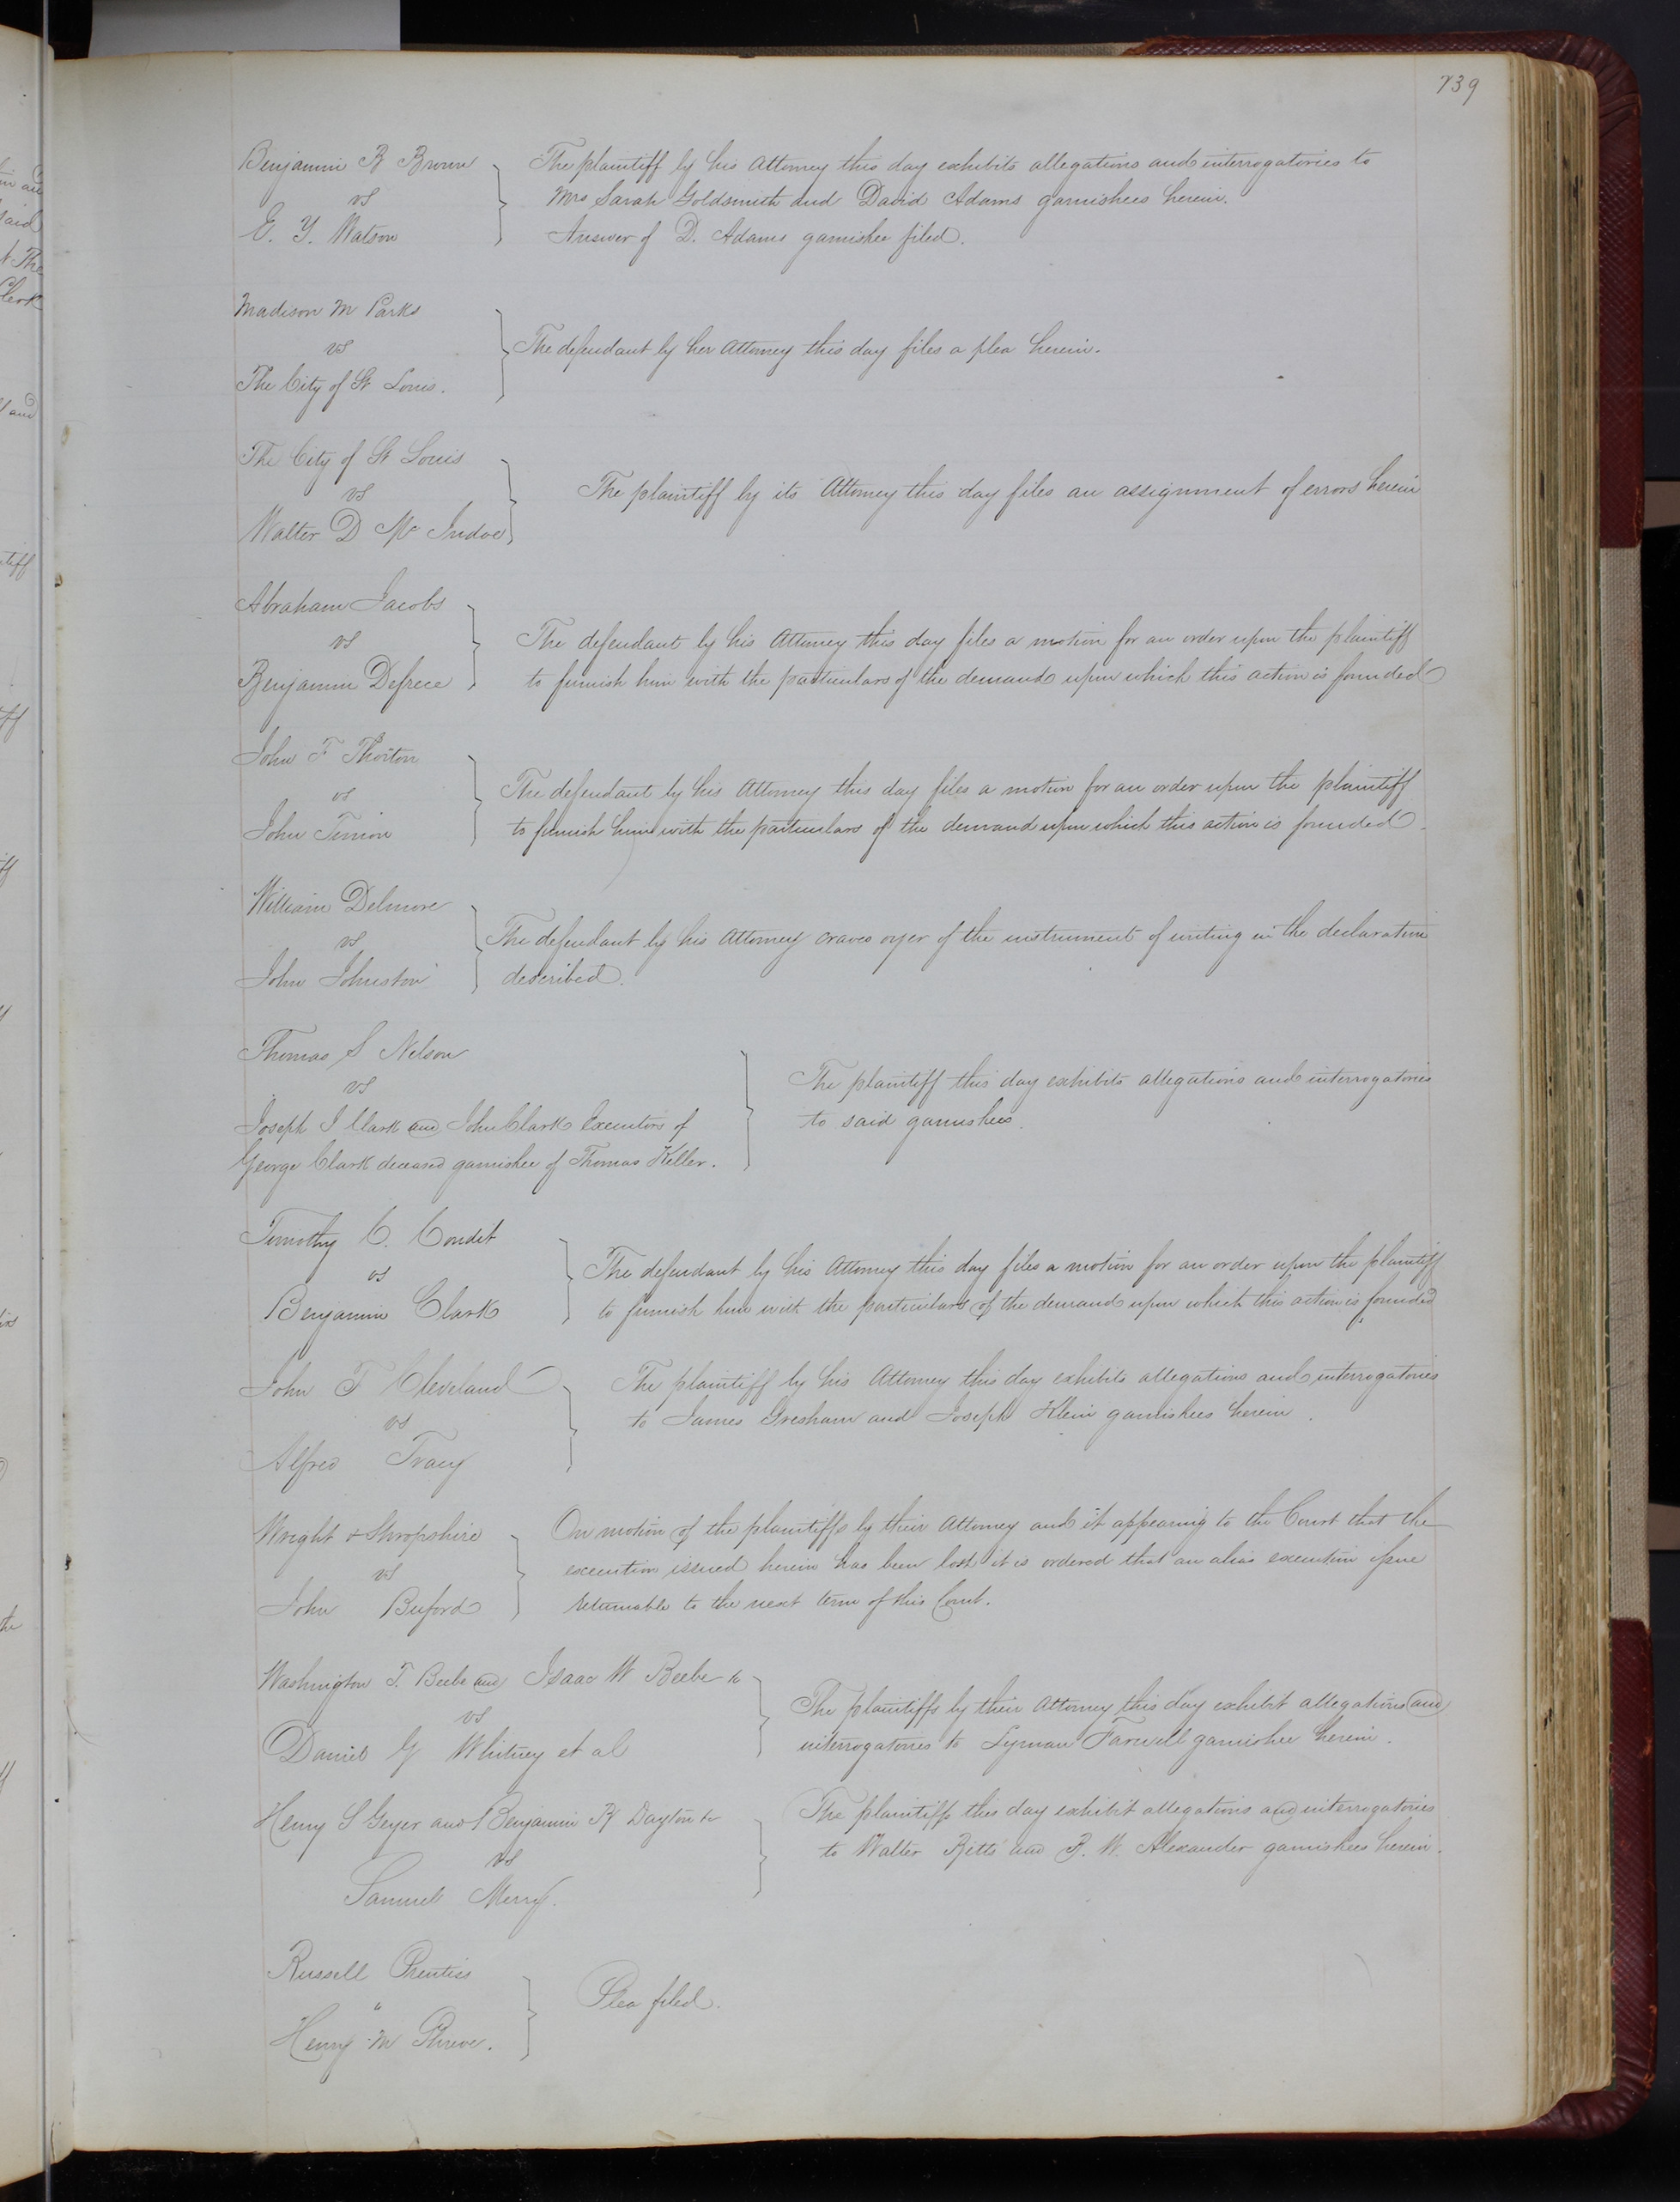 739
Benjamin B Brown
vs
E. Y. Watson
The plaintiff by his Attorney this day exhibits allegations and interrogatories to
Mrs Sarah Goldsmith and David Adams garnishees herein.
Answer of D. Adams garnishee filed.
Madison M Parks
vs
The City of St Louis.
The defendant by her Attorney this day files a plea herein.
The City of St Louis
vs
Walter D Mc Indoe
The plaintiff by its Attorney this day files an assignment of errors herein
Abraham Jacobs
vs
Benjamin Defrece
The defendant by his Attorney this day files a motion for an order upon the plaintiff
to furnish him with the particulars of the demand upon which this action is founded
John F Thorton
vs
John Timon
The defendant by his Attorney this day files a motion for an order upon the plaintiff
to furnish him with the particulars of the demand upon which this action is founded.
William Delmore
vs
John Johnston
The defendant by his Attorney craves oyer of the instrument of writing in the declaration
described.
Thomas S Nelson
vs
Joseph I Clark and John Clark Executors of
George Clark deceased garnishee of Thomas Keller.
The plaintiff this day exhibits allegations and interrogatories
to said garnishees.
Timothy C. Condit
vs
Benjamin Clark
The defendant by his Attorney this day files a motion for an order upon the plaintiff
to furnish him with the particulars of the demand upon which this action is founded
John T Cleveland
vs
Alfred Tracy
The plaintiff by his Attorney this day exhibits allegations and interrogatories
to James Gresham and Joseph Klein garnishees herein.
Wright & Shropshire
vs
John Buford
On motion of the plaintiffs by their Attorney and it appearing to the Court that the
execution issued herein has been lost it is ordered that an alias execution issue
returnable to the next term of this Court.
Washington T. Beebe and Isaac W Beebe &c
vs
Daniel G Whitney et al
The plaintiffs by their Attorney this day exhibit allegations and
interrogatories to Lyman Farwell garnishee herein.
Henry S Geyer and Benjamin B Dayton &c
vs
Samuel Merry.
The plaintiffs this day exhibit allegations and interrogatories
to Walter Bitts and B. W. Alexander garnishees herein.
Russell Prentiss
"
Henry M Shreve.
Plea filed.